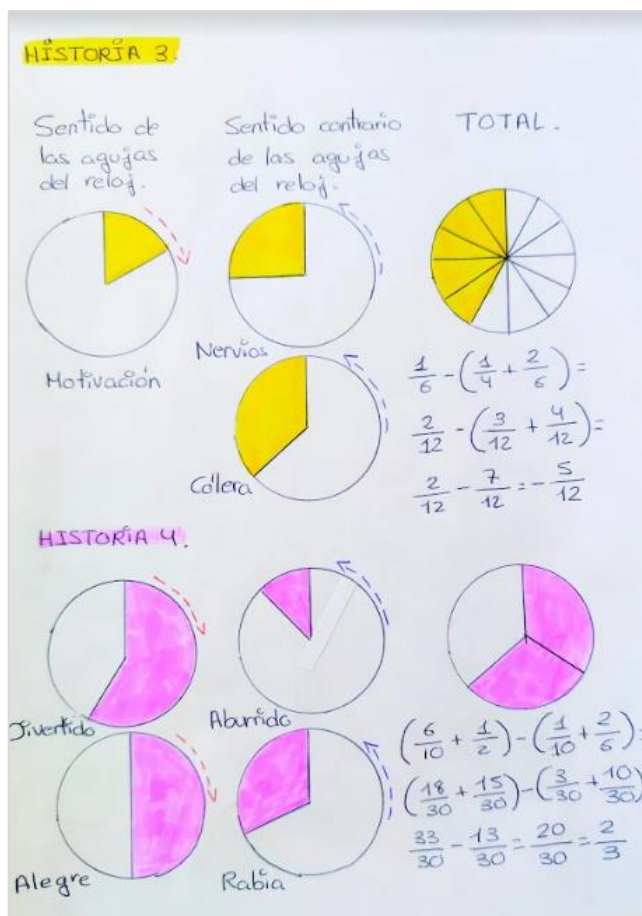 HISTORIA 3.
Sentido de
las agujas
del reloj.
Sentido contrario
de las agujas
del reloj.
TOTAL.
Motivación
Nervios
Cólera
1/6 - (1/4 + 2/6) =
2/12 - (3/12 + 4/12) =
2/12 - 7/12 = - 5/12
HISTORIA 4.
Divertido
Aburrido
Alegre
Rabia
(6/10 + 1/2) - (1/10 + 2/6) =
(18/30 + 15/30) - (3/30 + 10/30)
33/30 - 13/30 = 20/30 = 2/3